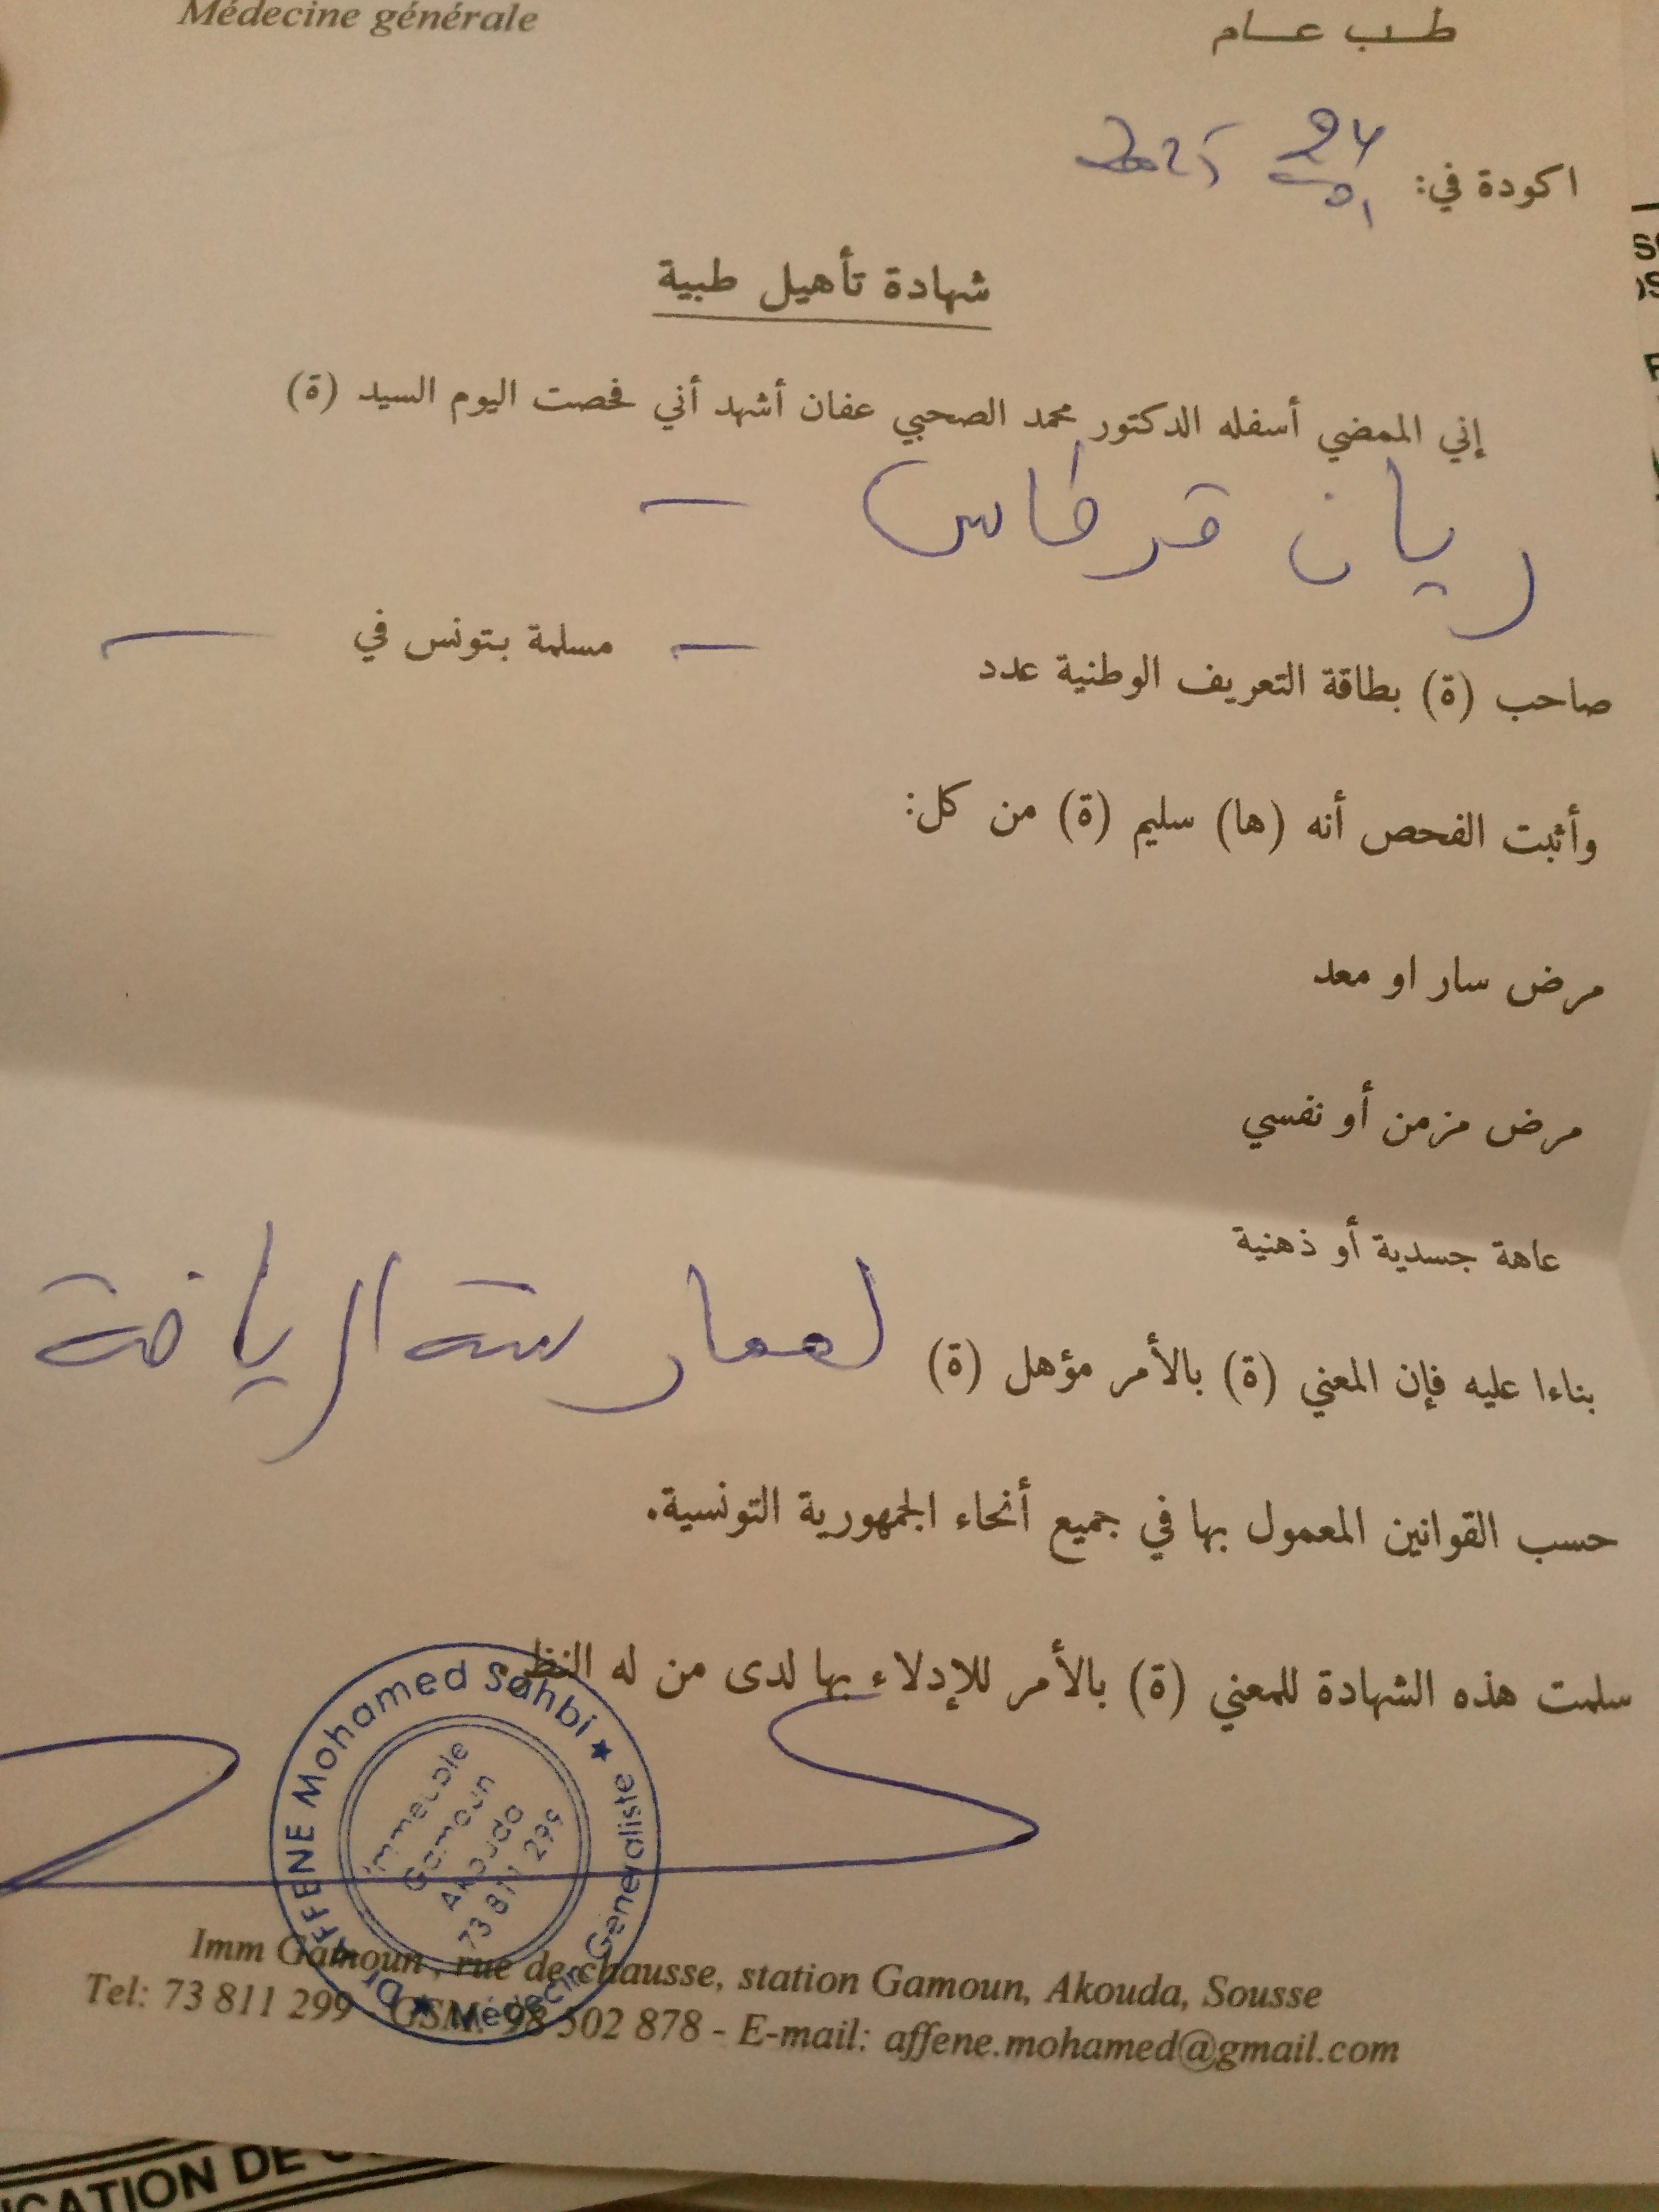 Médecine générale
طب عام
اكودة في: 24 01 2025
شهادة تأهيل طبية
إني الممضي أسفله الدكتور محمد الصحبي عفان أشهد أني فحصت اليوم السيد (ة)
ريان قرطاس —
صاحب (ة) بطاقة التعريف الوطنية عدد — مسلمة بتونس في —
وأثبت الفحص أنه (ها) سليم (ة) من كل:
مرض سار او معد
مرض مزمن أو نفسي
عاهة جسدية أو ذهنية
بناءا عليه فإن المعني (ة) بالأمر مؤهل (ة) لممارسة الرياضة
حسب القوانين المعمول بها في جميع أنحاء الجمهورية التونسية.
سلمت هذه الشهادة للمعني (ة) بالأمر للإدلاء بها لدى من له النظر
Dr AFFENE Mohamed Sahbi ★
Médecin Généraliste ★
Immeuble
Gamoun
Akouda
73 811 299
Imm Gamoun, rue de chausse, station Gamoun, Akouda, Sousse
Tel: 73 811 299 - GSM: 98 502 878 - E-mail: affene.mohamed@gmail.com